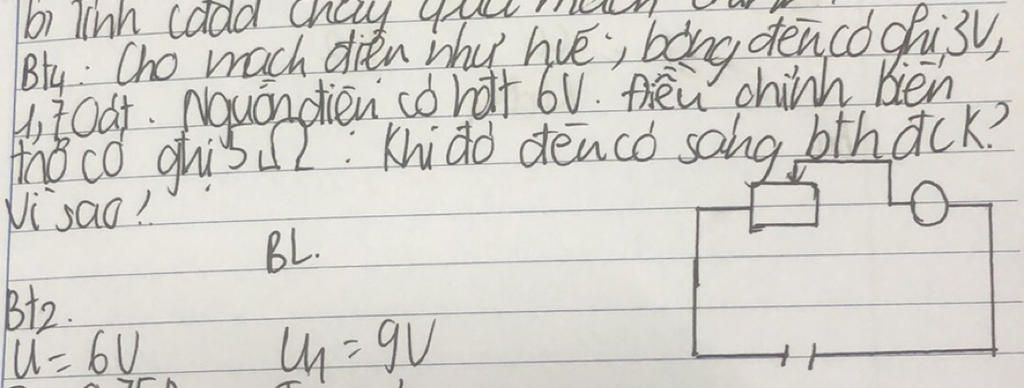 b) Tính cđdđ chạy qua mạch
Bt4: Cho mạch điện như hvẽ, bóng đèn có ghi 3V,
1,7 Oát. Nguồn điện có hđt 6V. Điều chỉnh biến
trở có ghi 5Ω. Khi đó đèn có sáng bth đc K?
Vì sao!
BL.
Bt2.
U = 6V U1 = 9V